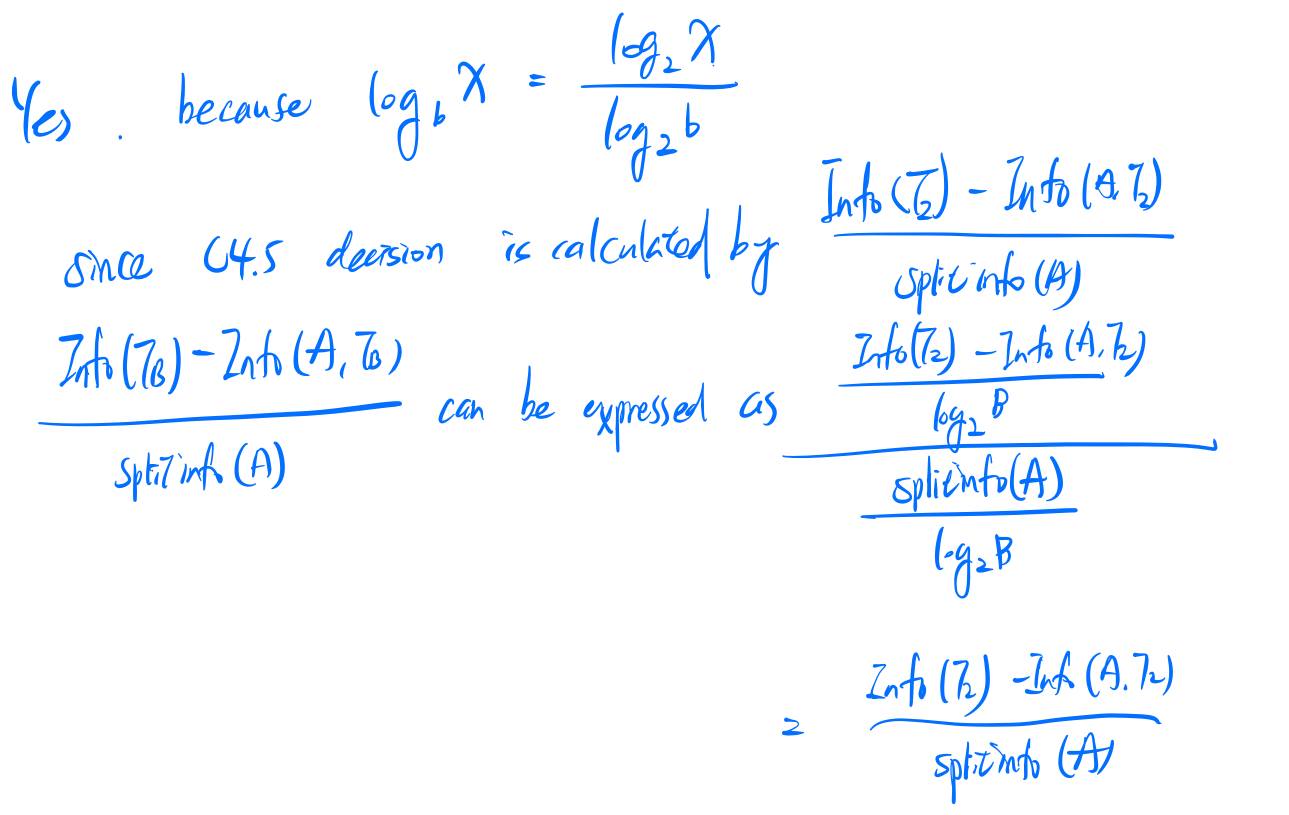 Yes. because log_b X = \frac{log_2 X}{log_2 b}
since C4.5 decision is calculated by \frac{Info(T_2) - Info(A, T_2)}{splitinfo(A)}
\frac{Info(T_B) - Info(A, T_B)}{splitinfo(A)} can be expressed as \frac{\frac{Info(T_2) - Info(A, T_2)}{log_2 B}}{\frac{splitinfo(A)}{log_2 B}}
= \frac{Info(T_2) - Info(A, T_2)}{splitinfo(A)}